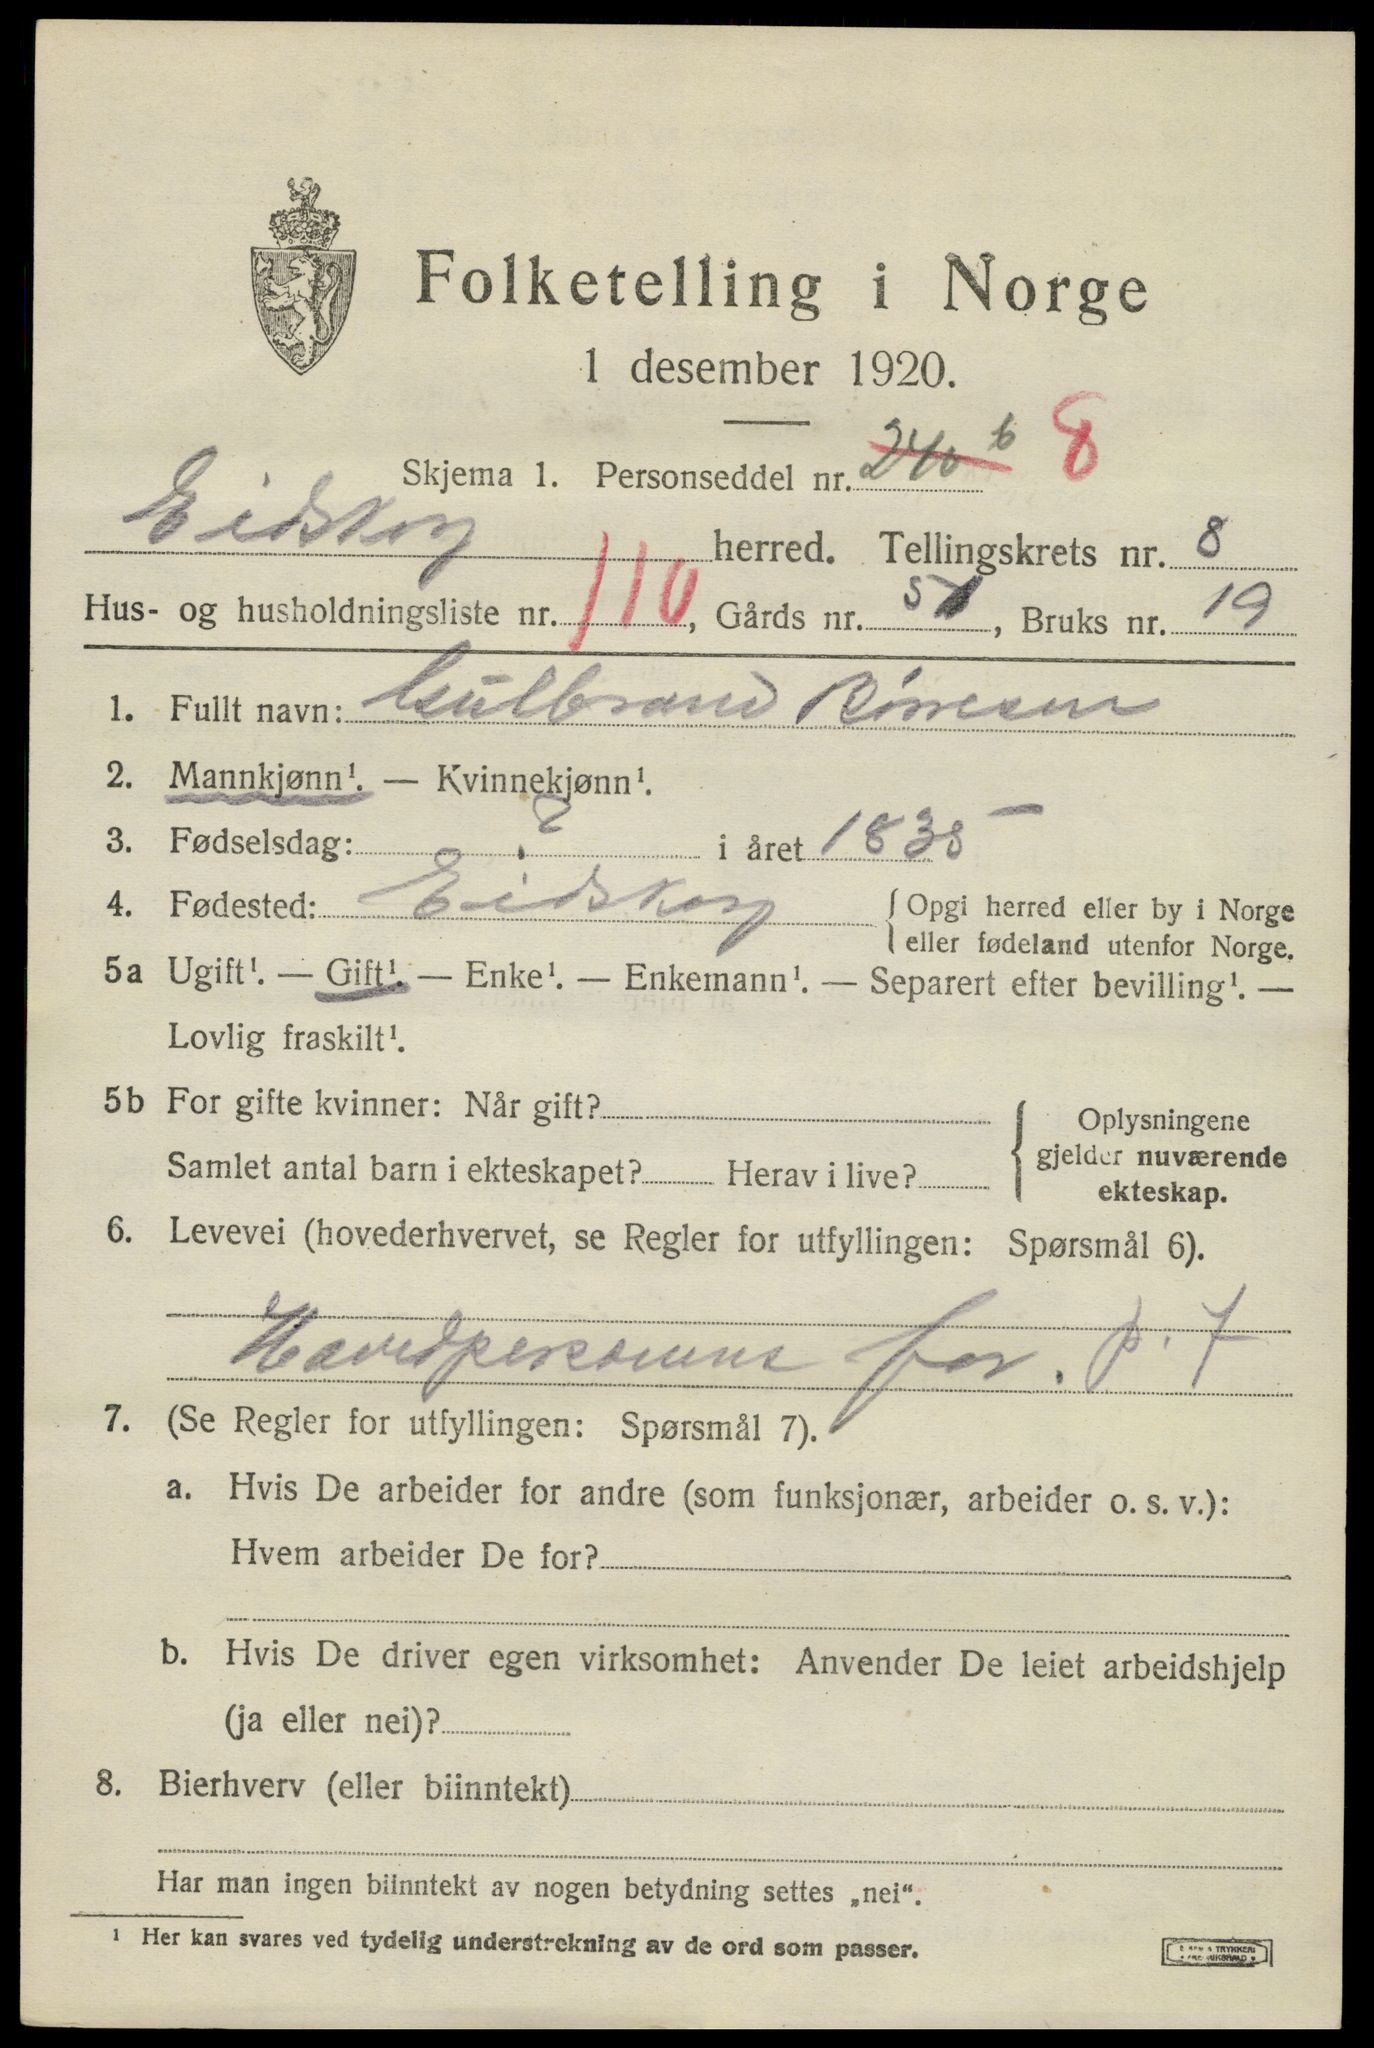 Folketelling i Norge
1 desember 1920.
Skjema 1. Personseddel nr. 240 b 8
Eidskog herred. Tellingskrets nr. 8
Hus- og husholdningsliste nr. 110, Gårds nr. 51, Bruks nr. 19
1. Fullt navn: Gulbrand
2. Mannkjønn¹. — Kvinnekjønn¹.
3. Fødselsdag: ? i året 1835
4. Fødested: Eidskog { Opgi herred eller by i Norge
eller fødeland utenfor Norge.
5a Ugift¹. — Gift¹. — Enke¹. — Enkemann¹. — Separert efter bevilling¹. —
Lovlig fraskilt¹.
5b For gifte kvinner: Når gift? { Oplysningene
gjelder nuværende
ekteskap.
Samlet antal barn i ekteskapet? Herav i live?
6. Levevei (hovederhvervet, se Regler for utfyllingen: Spørsmål 6).
for. p. 7
7. (Se Regler for utfyllingen: Spørsmål 7).
a. Hvis De arbeider for andre (som funksjonær, arbeider o. s. v.):
Hvem arbeider De for?
b. Hvis De driver egen virksomhet: Anvender De leiet arbeidshjelp
(ja eller nei)?
8. Bierhverv (eller biinntekt)
Har man ingen biinntekt av nogen betydning settes „nei“.
¹ Her kan svares ved tydelig understrekning av de ord som passer.